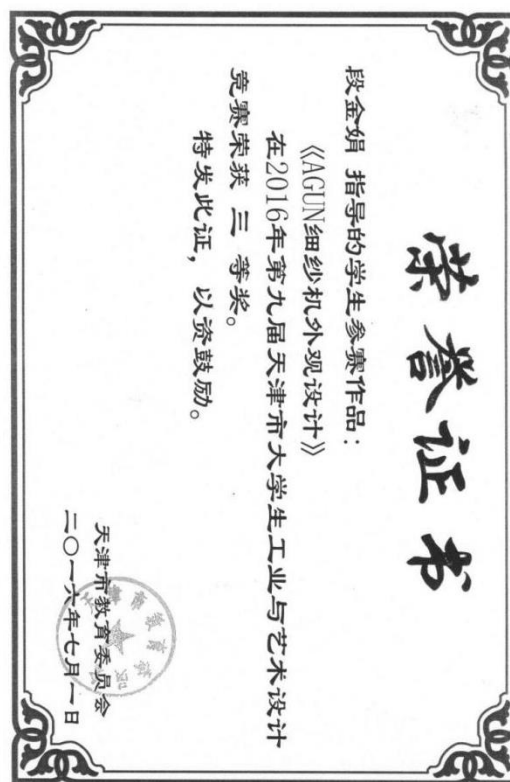 荣誉证书
段金娟 指导的学生参赛作品：
《AGUN细纱机外观设计》
在2016年第九届天津市大学生工业与艺术设计
竞赛荣获 三 等奖。
特发此证，以资鼓励。
天津市教育委员会
二〇一六年七月一日